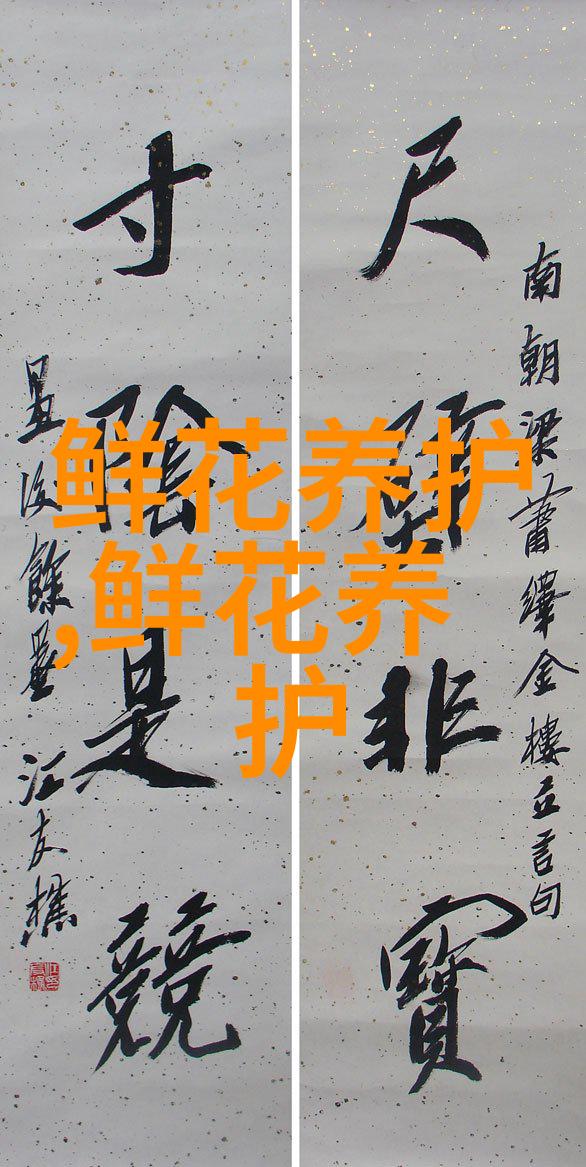 南朝梁蕭繹金樓立言句
尺璧非寶
寸陰是競
江友樵
鲜花养护
,鲜花养
护